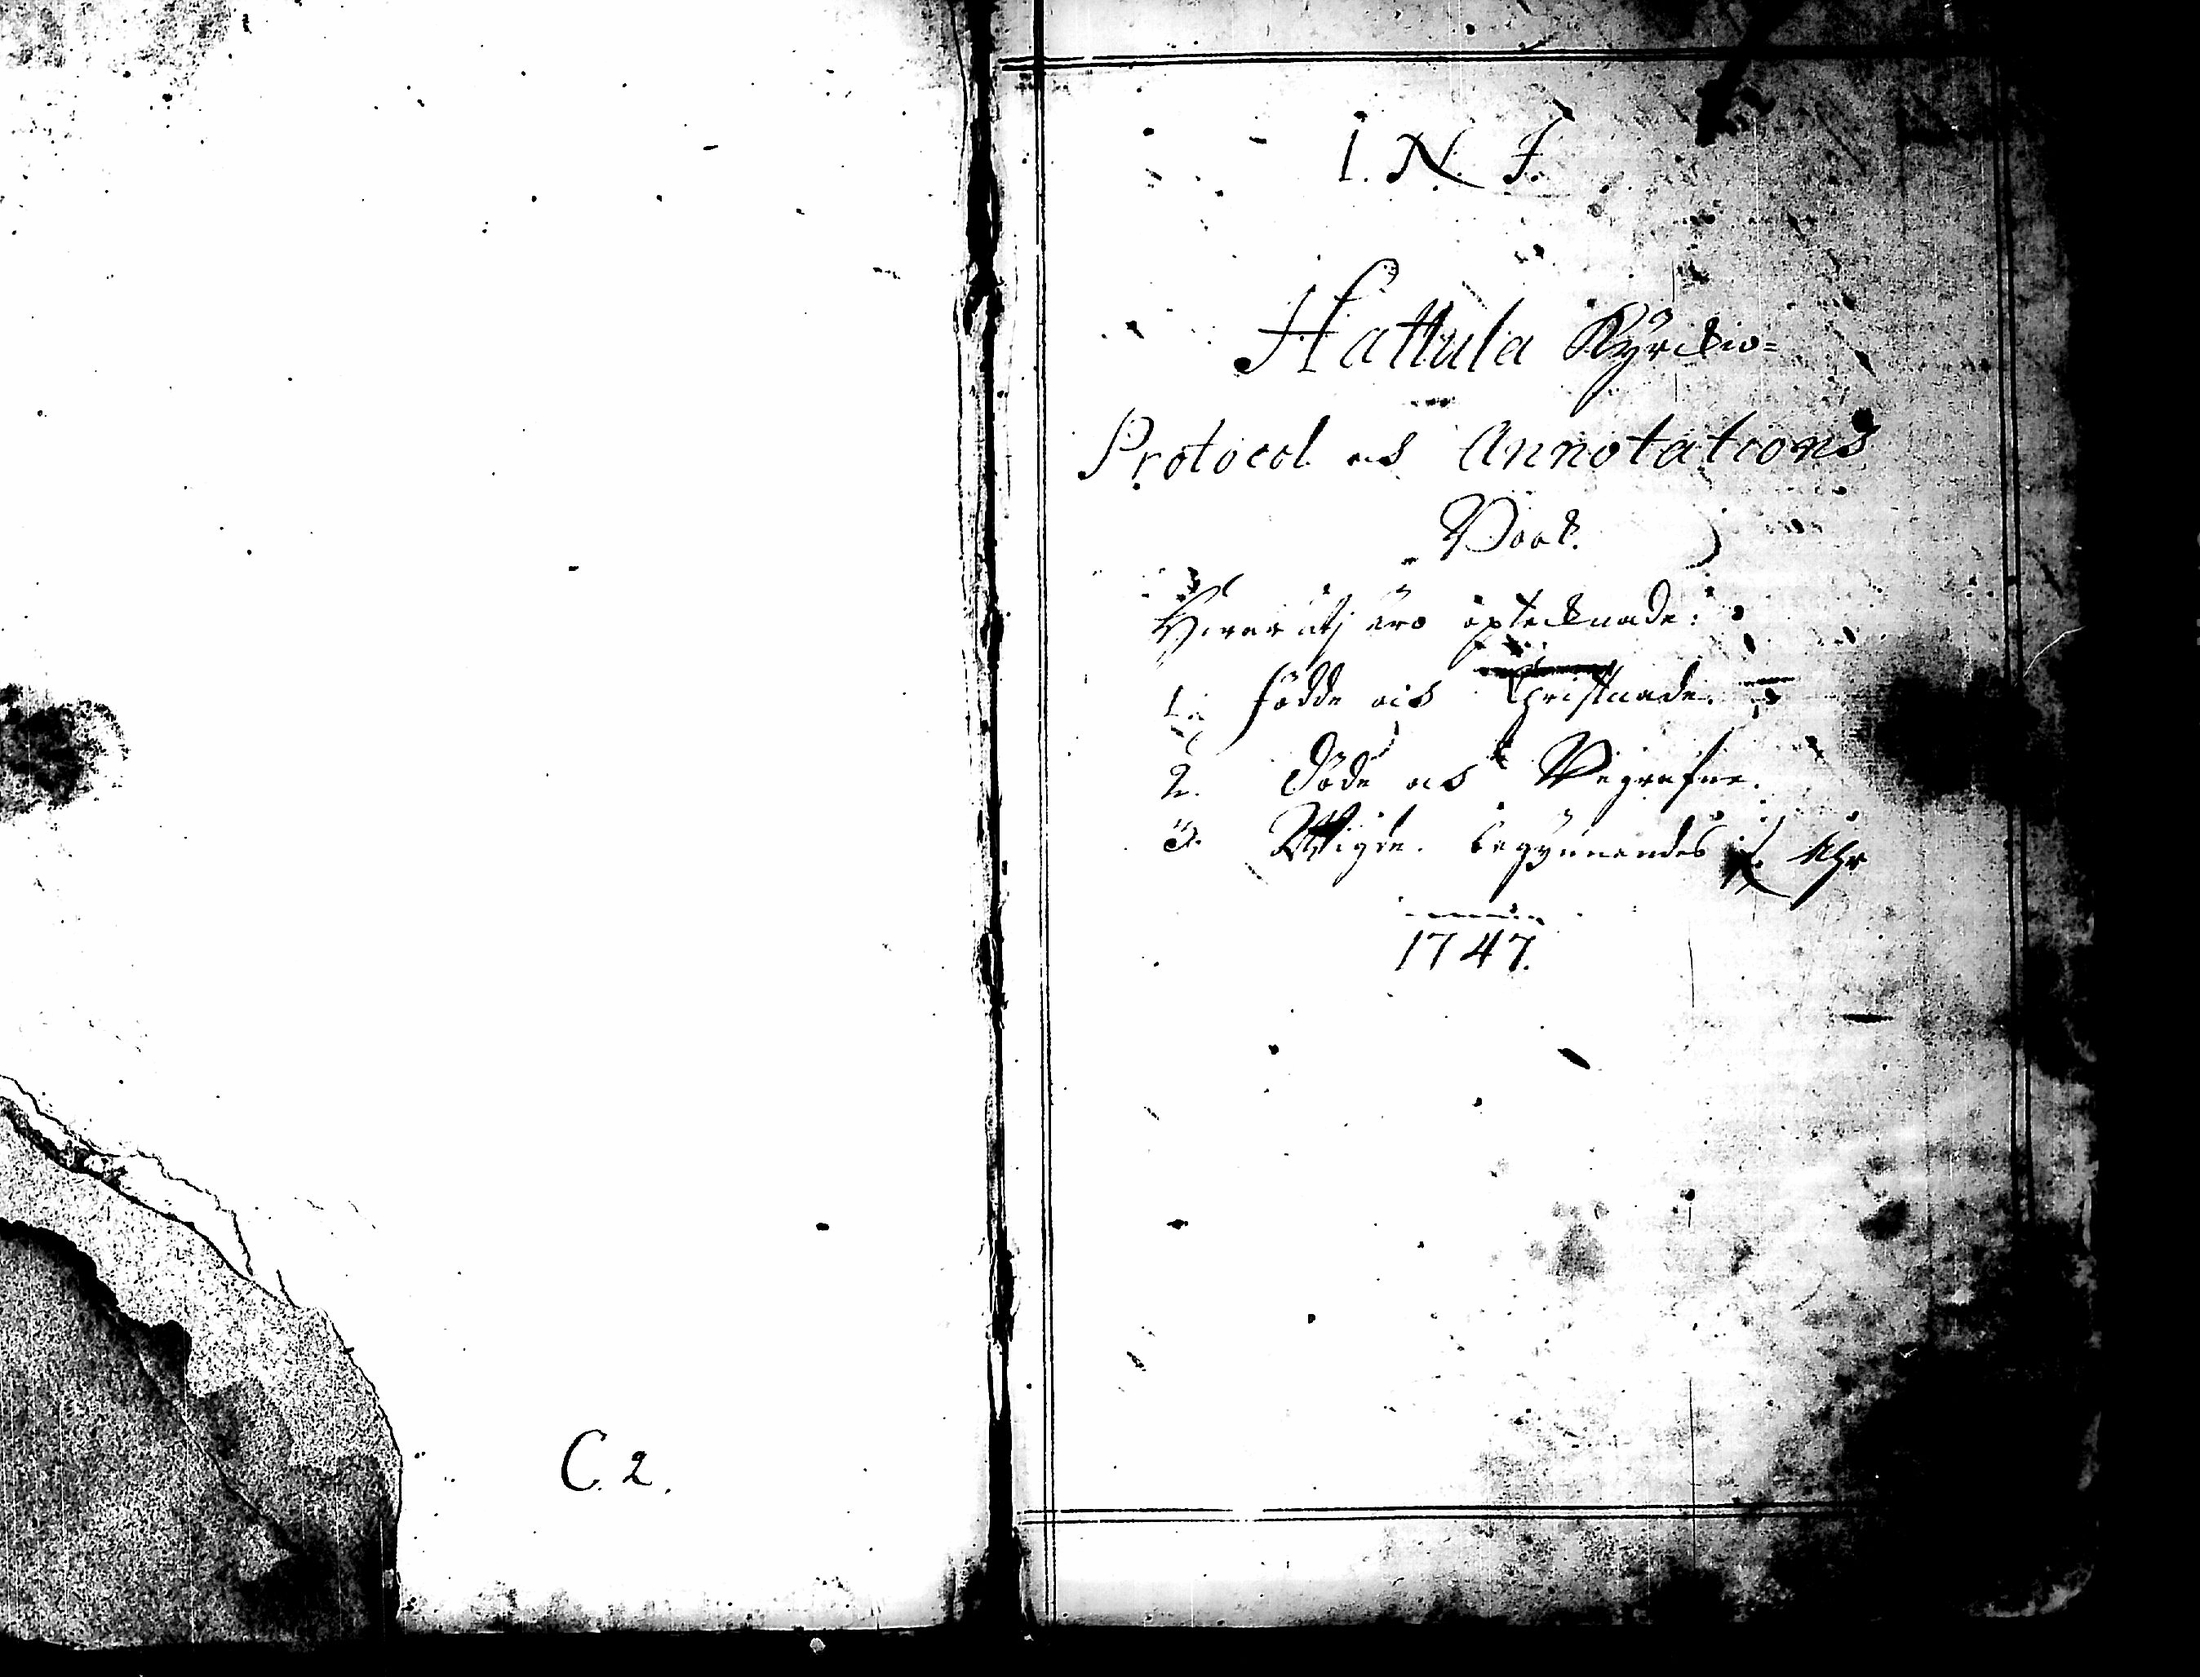 C. 2.
I. N. J.
Hattula Kyrckio=
Protocol och Annotations
Book.
Häruti äro optecknade:
1. födde och Christnade.
2. Döde och Begrafne.
3. Wigde. begynnandes åhr
1747.